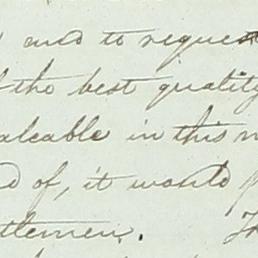 and to request
the best quality
aleable in this m
d of, it would p
tlemen.